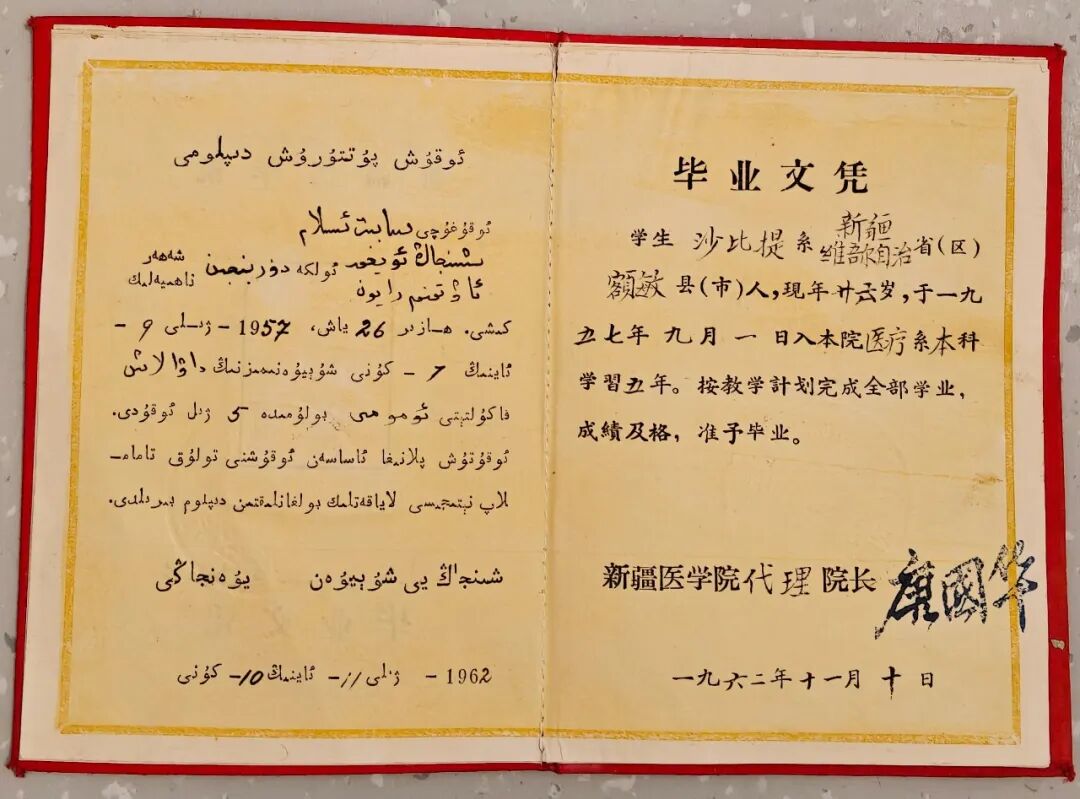 ئوقۇش پۈتتۈرۈش دىپلومى
ئوقۇغۇچى سابىت ئىسلام
شىنجاڭ ئۇيغۇر ئولكە دۆربىنجىن شەھەر ناھىيەلىك
ئاۋتونوم رايون
كىشى. ھازىر 26 ياش، 1957 - ژىلى 9 -
ئاينىڭ 1 - كۇنى شۇيۇەنىمىزنىڭ داۋالاش
فاكۇلتېتى ئومومى بولۇمىدە 5 ژىل ئوقۇدى.
ئوقۇتۇش پلانىغا ئاساسەن ئوقۇشنى تولۇق تامام-
لاپ نېتىجىسى لاياقەتلىك بولغانلىقتىن دىپلوم بىرىلدى.
شىنجاڭ يى شۇيۇەن يۇەنجاڭى
1962 - ژىلى 11 - ئاينىڭ 10 - كۇنى
毕业文凭
学生 沙比提 系 新疆维吾尔自治省(区)
额敏县(市)人，现年廿六岁，于一九
五七年九月一日入本院医疗系本科
学习五年。按教学计划完成全部学业，
成績及格，准予毕业。
新疆医学院代理院长 康國华
一九六二年十一月十日